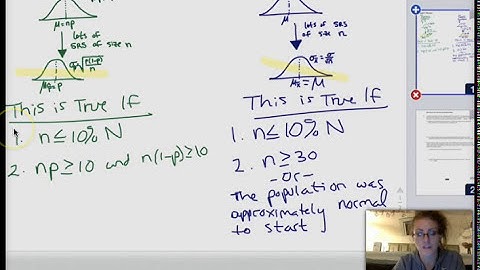 μ=np
lots of
SRS of
size n
σp̂=√p(1-p)/n
μp̂=p
This is True If
1. n≤10% N
2. np≥10 and n(1-p)≥10
μ
lots of
SRS of size n
σx̄=σ/√n
μx̄=μ
This is True If
1. n≤10% N
2. n≥30
-or-
The population was
approximately normal
to start